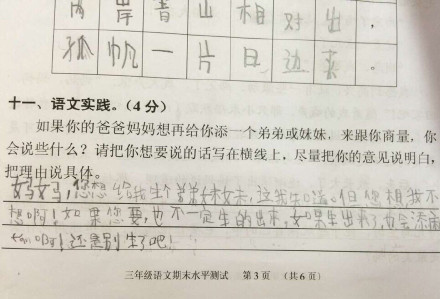 两岸青山相对出，
孤帆一片日边来。
十一、语文实践。（4分）
如果你的爸爸妈妈想再给你添一个弟弟或妹妹，来跟你商量，你
会说些什么？请把你想要说的话写在横线上，尽量把你的意见说明白，
把理由说具体。
妈妈，您想给我生个弟弟妹妹，这我知道。但您想我不
想啊！如果您要，也不一定生的出来，如果生出来了，也会添麻
烦啊！还是别生了吧！
三年级语文期末水平测试 第3页 （共6页）